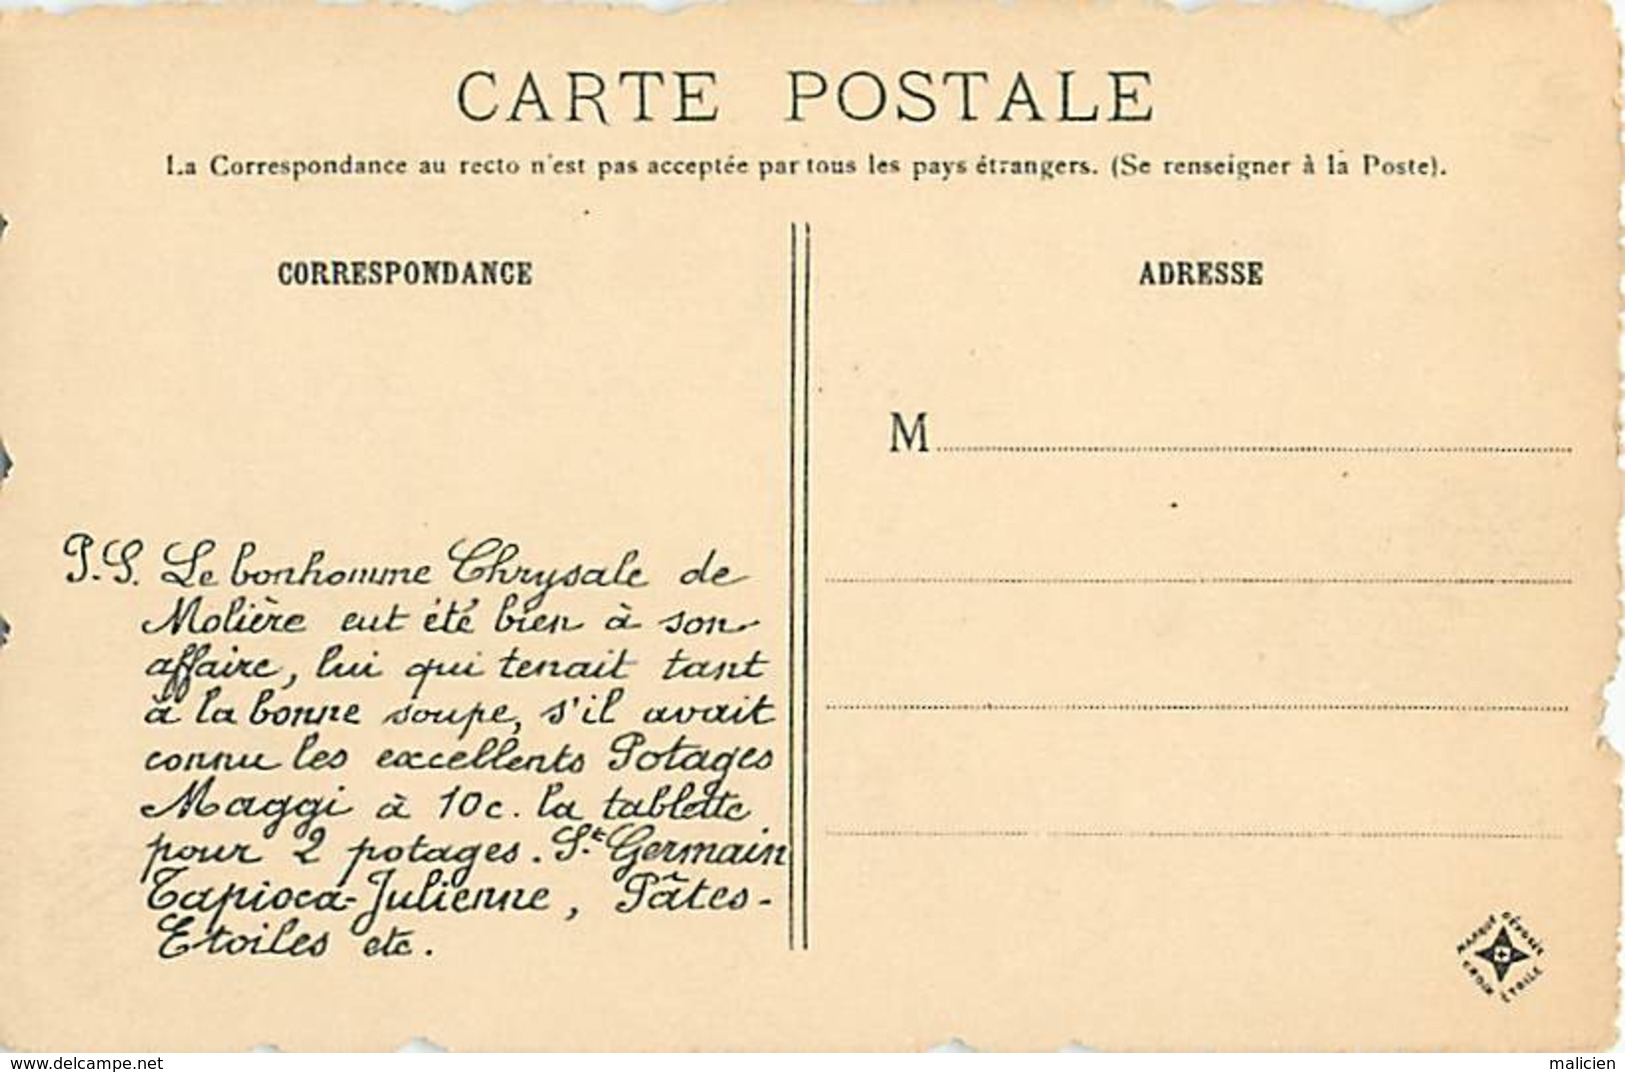 CARTE POSTALE
La Correspondance au recto n'est pas acceptée par tous les pays étrangers. (Se renseigner à la Poste).
CORRESPONDANCE
P.S. Le bonhomme Chrysale de
Molière eut été bien à son
affaire, lui qui tenait tant
à la bonne soupe, s'il avait
connu les excellents Potages
Maggi à 10c. la tablette
pour 2 potages. St Germain
Tapioca-Julienne, Pâtes-
Etoiles etc.
ADRESSE
M
MARQUE DÉPOSÉE
CROIX ETOILE
www.delcampe.net
malicien